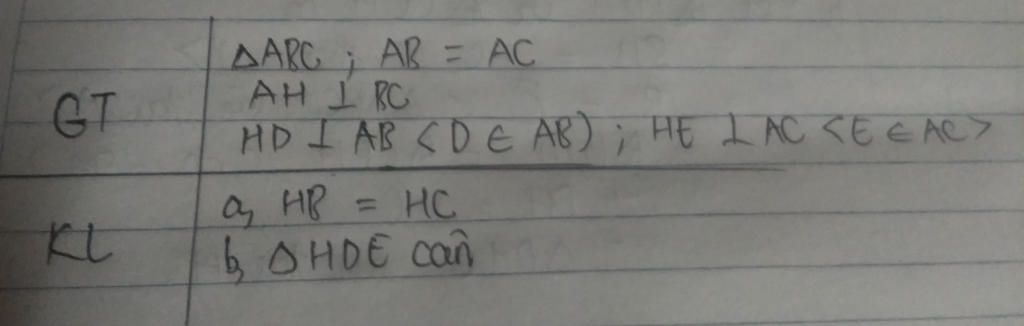 GT
ΔABC ; AB = AC
AH ⊥ BC
HD ⊥ AB <D ∈ AB) ; HE ⊥ AC <E ∈ AC>
KL
a, HB = HC
b, ΔHDE cân